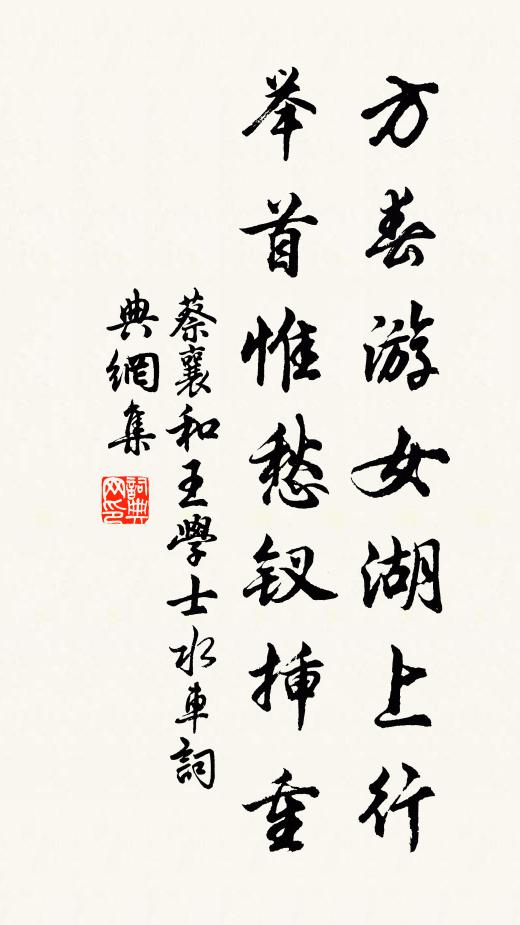 方春游女湖上行
举首惟愁钗插重
蔡襄和王學士水車詞
典網集
詞典网印